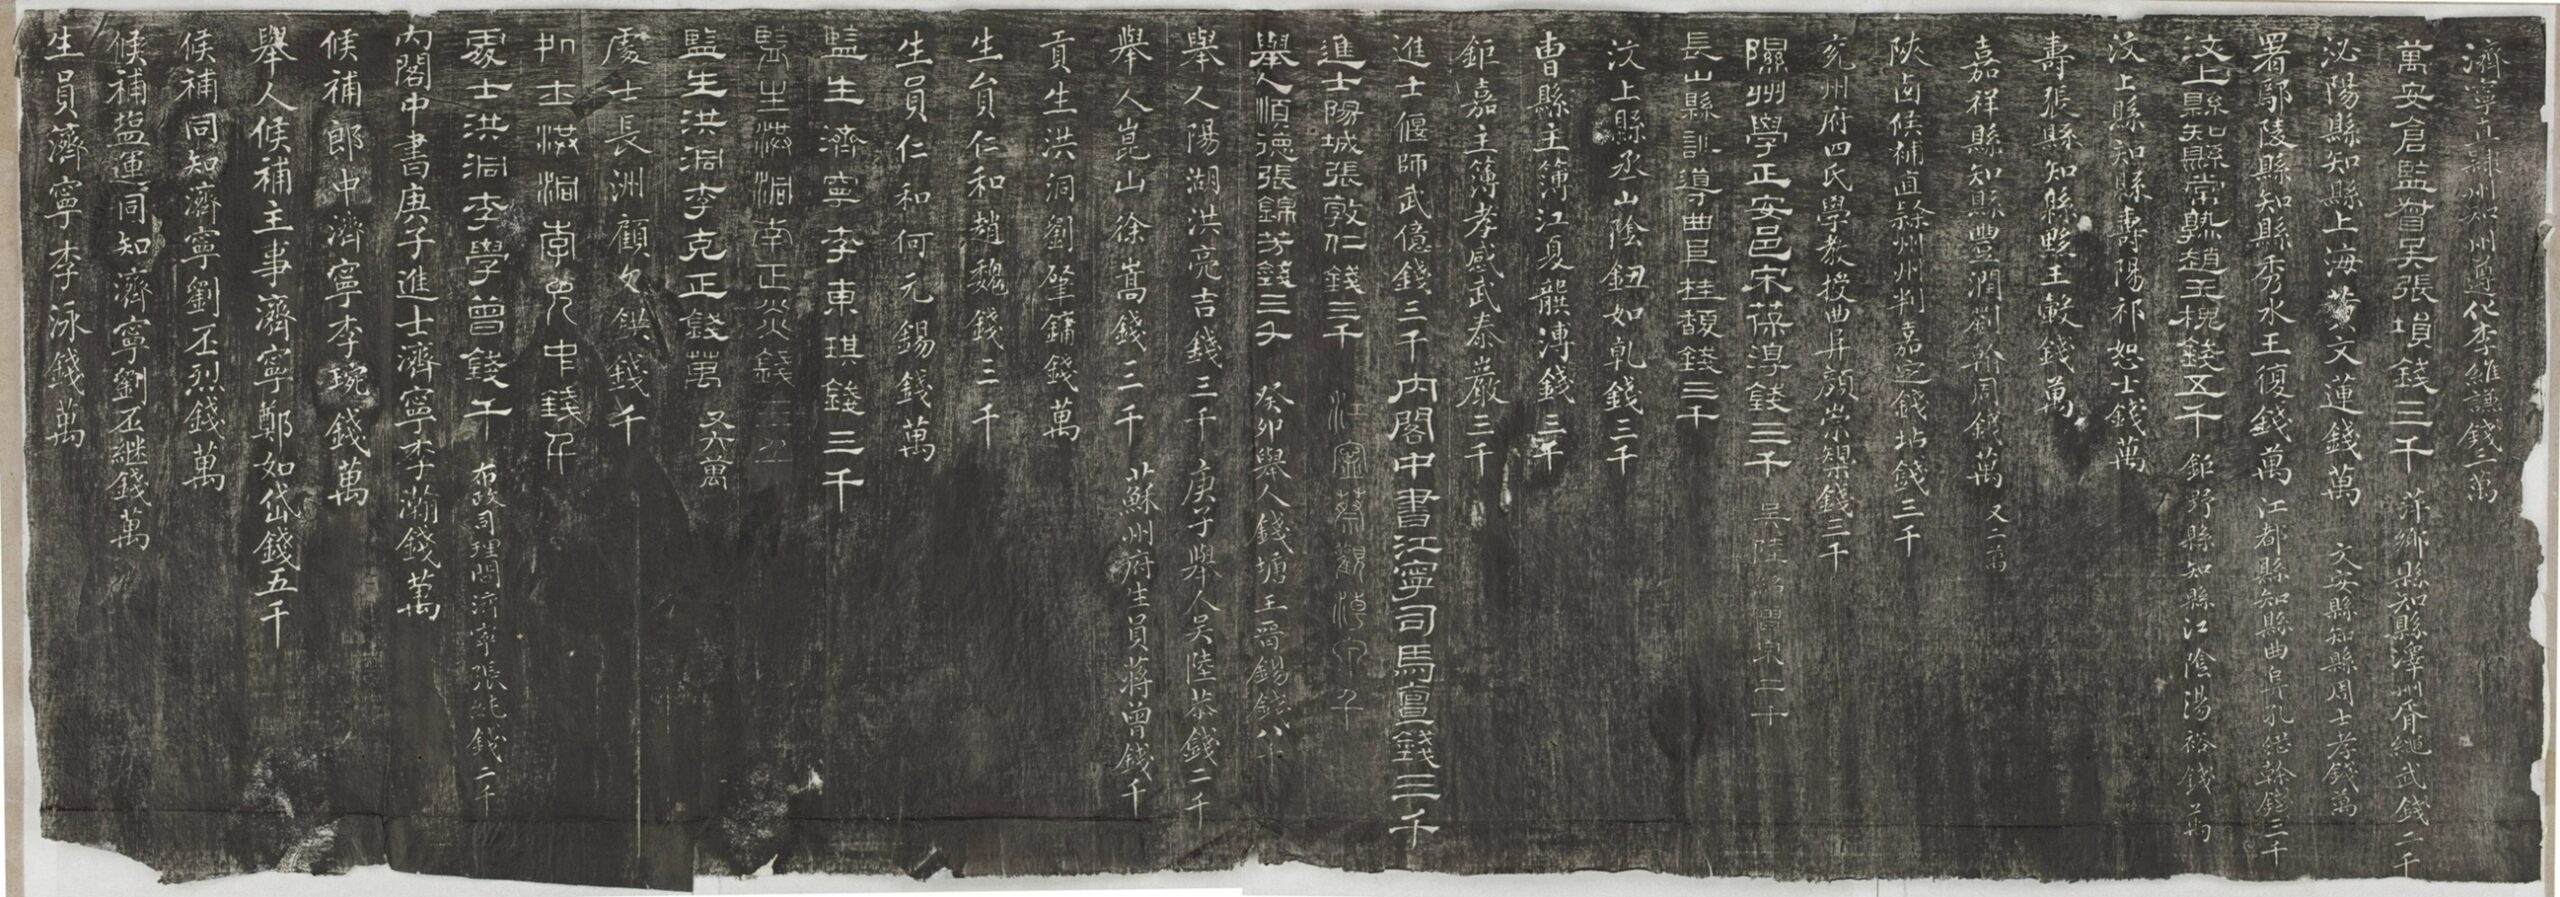 濟寧直隸州知州遵化李維謙錢二萬
萬安倉監督吳張塤錢三千 萍鄉縣知縣澤州胥繩武錢二千
泌陽縣知縣上海黃文蓮錢萬 文安縣知縣周士孝錢萬
署鄢陵縣知縣秀水王復錢萬 江都縣知縣曲阜孔繼榦錢三千
汶上縣知縣常熟趙王槐錢五千 鉅野縣知縣江陰湯裕錢萬
汶上縣知縣壽陽祁恕士錢萬
壽張縣知縣黟王轂錢萬
嘉祥縣知縣豐潤劉翰周錢萬 又二萬
陝鹵候補直隸州州判嘉定錢坫錢三千
兗州府四氏學教授曲阜顏崇槼錢三千
隰州學正安邑宋葆淳錢三千 吳陸紹曾泉二千
長山縣訓導曲阜桂馥錢三千
汶上縣丞山陰鈕如乹錢三千
曹縣主簿江夏龔溥錢三千
鉅嘉主簿孝感武泰嚴三千
進士偃師武億錢三千 內閣中書江寧司馬亶錢三千
進士陽城張敦仁錢三千 江寧蔡觀瀾泉千
舉人順德張錦芳錢三千 癸卯舉人錢塘王晉錫錢八千
舉人陽湖洪亮吉錢三千 庚子舉人吳陸恭錢二千
舉人崑山徐嵩錢三千 蘇州府生員蔣曾錢千
貢生洪洞劉肇鏞錢萬
生員仁和趙魏錢三千
生員仁和何元錫錢萬
監生濟寧李東琪錢三千
監生洪洞李正炎錢三千
監生洪洞李克正錢萬 又六萬
處士長洲顧文鉷錢千
処士洪洞李兒中錢千
處士洪洞李學曾錢千 布政司理問濟寧張純錢二千
內閣中書庚子進士濟寧李瀚錢萬
候補郎中濟寧李琬錢萬
舉人候補主事濟寧鄭如岱錢五千
候補同知濟寧劉丕烈錢萬
候補塩運同知濟寧劉丕継錢萬
生員濟寧李泳錢萬